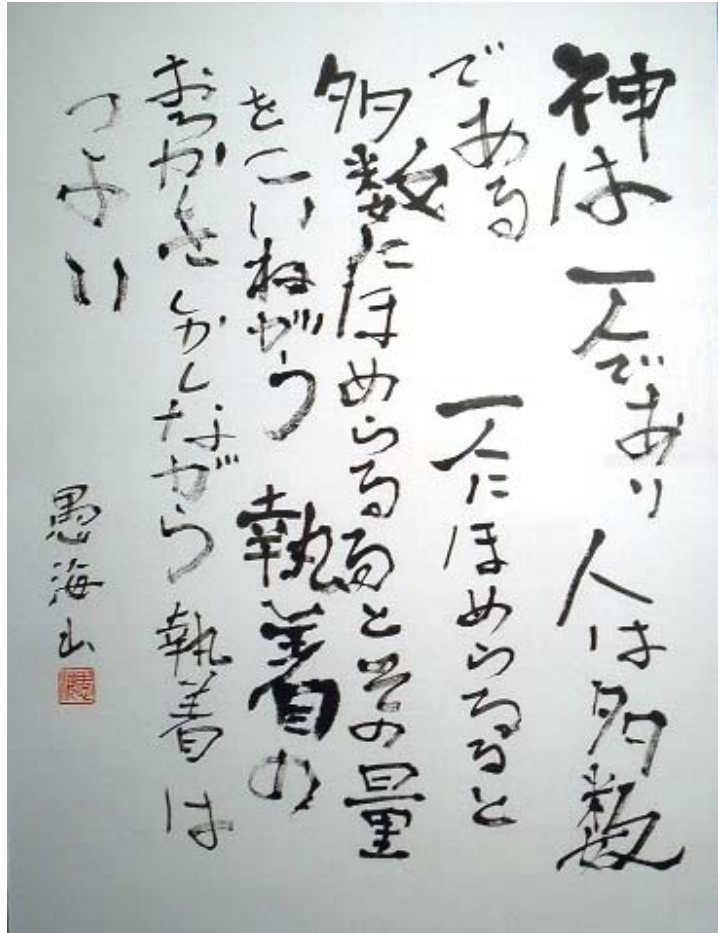 神は一人であり 人は多数
である 一人にほめらるると
多数にほめらるるとその量
をこいねがう 執着の
おろかさしかしながら 執着は
つよい
愚海山